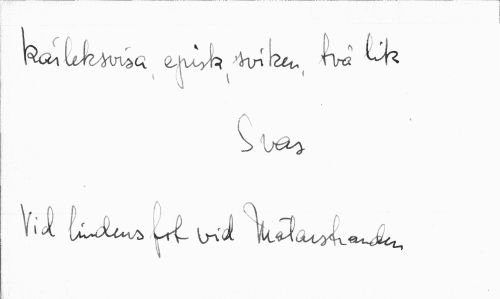 Kärleksvisa, episk, sviken, två lik
Svas
Vid lindens fot vid Mälarstranden